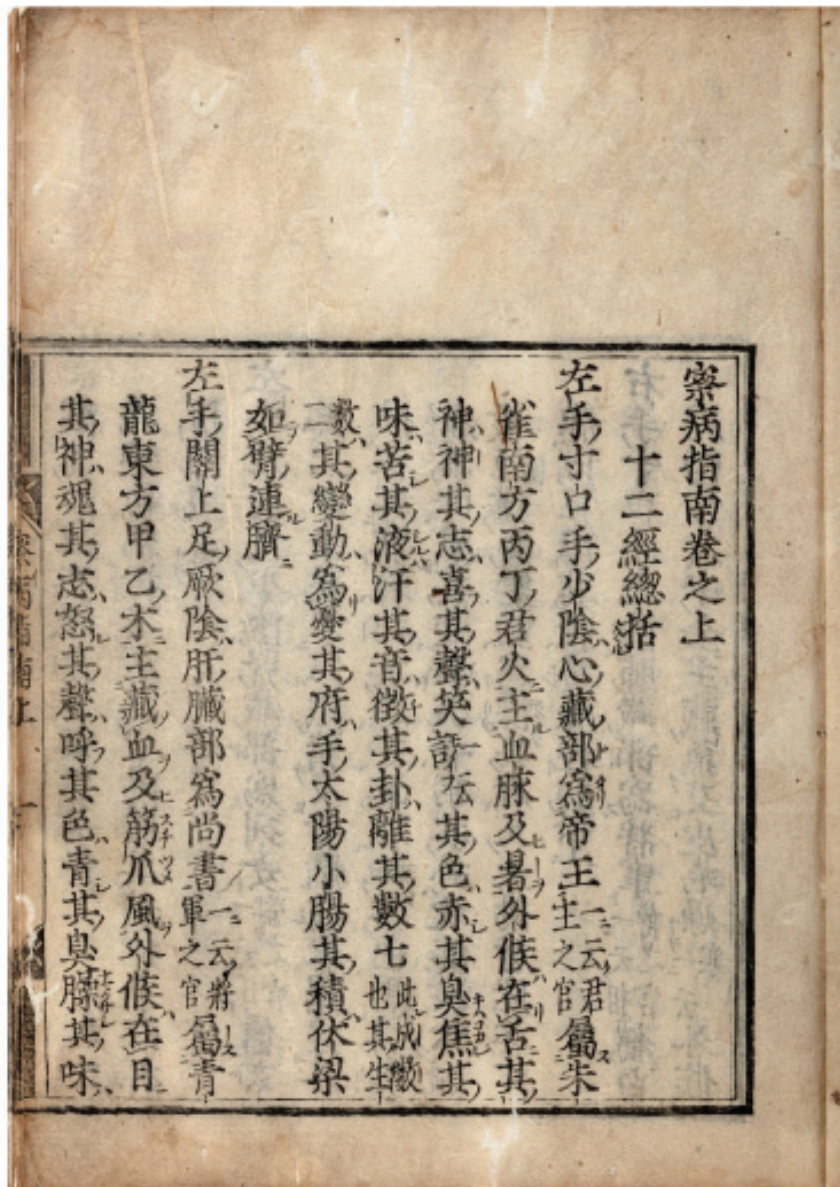 察病指南卷之上
十二經總括
左手寸口手少陰心藏部爲帝王一云君主之官屬朱
雀南方丙丁君火主血脉及暑外候在舌其
神神其志喜其聲笑一云言其色赤其臭焦其
味苦其液汗其音徵其卦離其數七此成數也其生
數二其變動爲憂其府手太陽小腸其積伏梁
如臂連臍
左手關上足厥陰肝臟部爲尚書一云將軍之官屬青
龍東方甲乙木主藏血及筋爪風外候在目
其神魂其志怒其聲呼其色青其臭臊其味